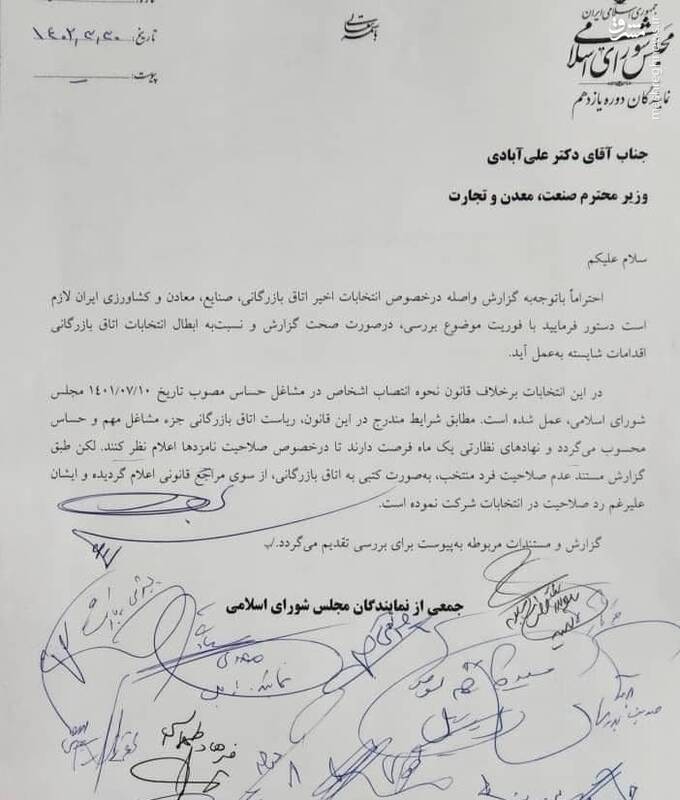 باسمه تعالی
جمهوری اسلامی ایران
مجلس شورای اسلامی
نمایندگان دوره یازدهم
تاریخ: ۱۴۰۲٫۳٫۳۰
پیوست:
جناب آقای دکتر علی‌آبادی
وزیر محترم صنعت، معدن و تجارت
سلام علیکم
احتراماً باتوجه‌به گزارش واصله درخصوص انتخابات اخیر اتاق بازرگانی، صنایع، معادن و کشاورزی ایران لازم
است دستور فرمایید با فوریت موضوع بررسی، درصورت صحت گزارش و نسبت‌به ابطال انتخابات اتاق بازرگانی
اقدامات شایسته به‌عمل آید.
در این انتخابات برخلاف قانون نحوه انتصاب اشخاص در مشاغل حساس مصوب تاریخ ۱۴۰۱/۰۷/۱۰ مجلس
شورای اسلامی، عمل شده است. مطابق شرایط مندرج در این قانون، ریاست اتاق بازرگانی جزء مشاغل مهم و حساس
محسوب می‌گردد و نهادهای نظارتی یک ماه فرصت دارند تا درخصوص صلاحیت نامزدها اعلام نظر کنند. لکن طبق
گزارش مستند عدم صلاحیت فرد منتخب، به‌صورت کتبی به اتاق بازرگانی، از سوی مراجع قانونی اعلام گردیده و ایشان
علیرغم رد صلاحیت در انتخابات شرکت نموده است.
گزارش و مستندات مربوطه به‌پیوست برای بررسی تقدیم می‌گردد./ب
جمعی از نمایندگان مجلس شورای اسلامی